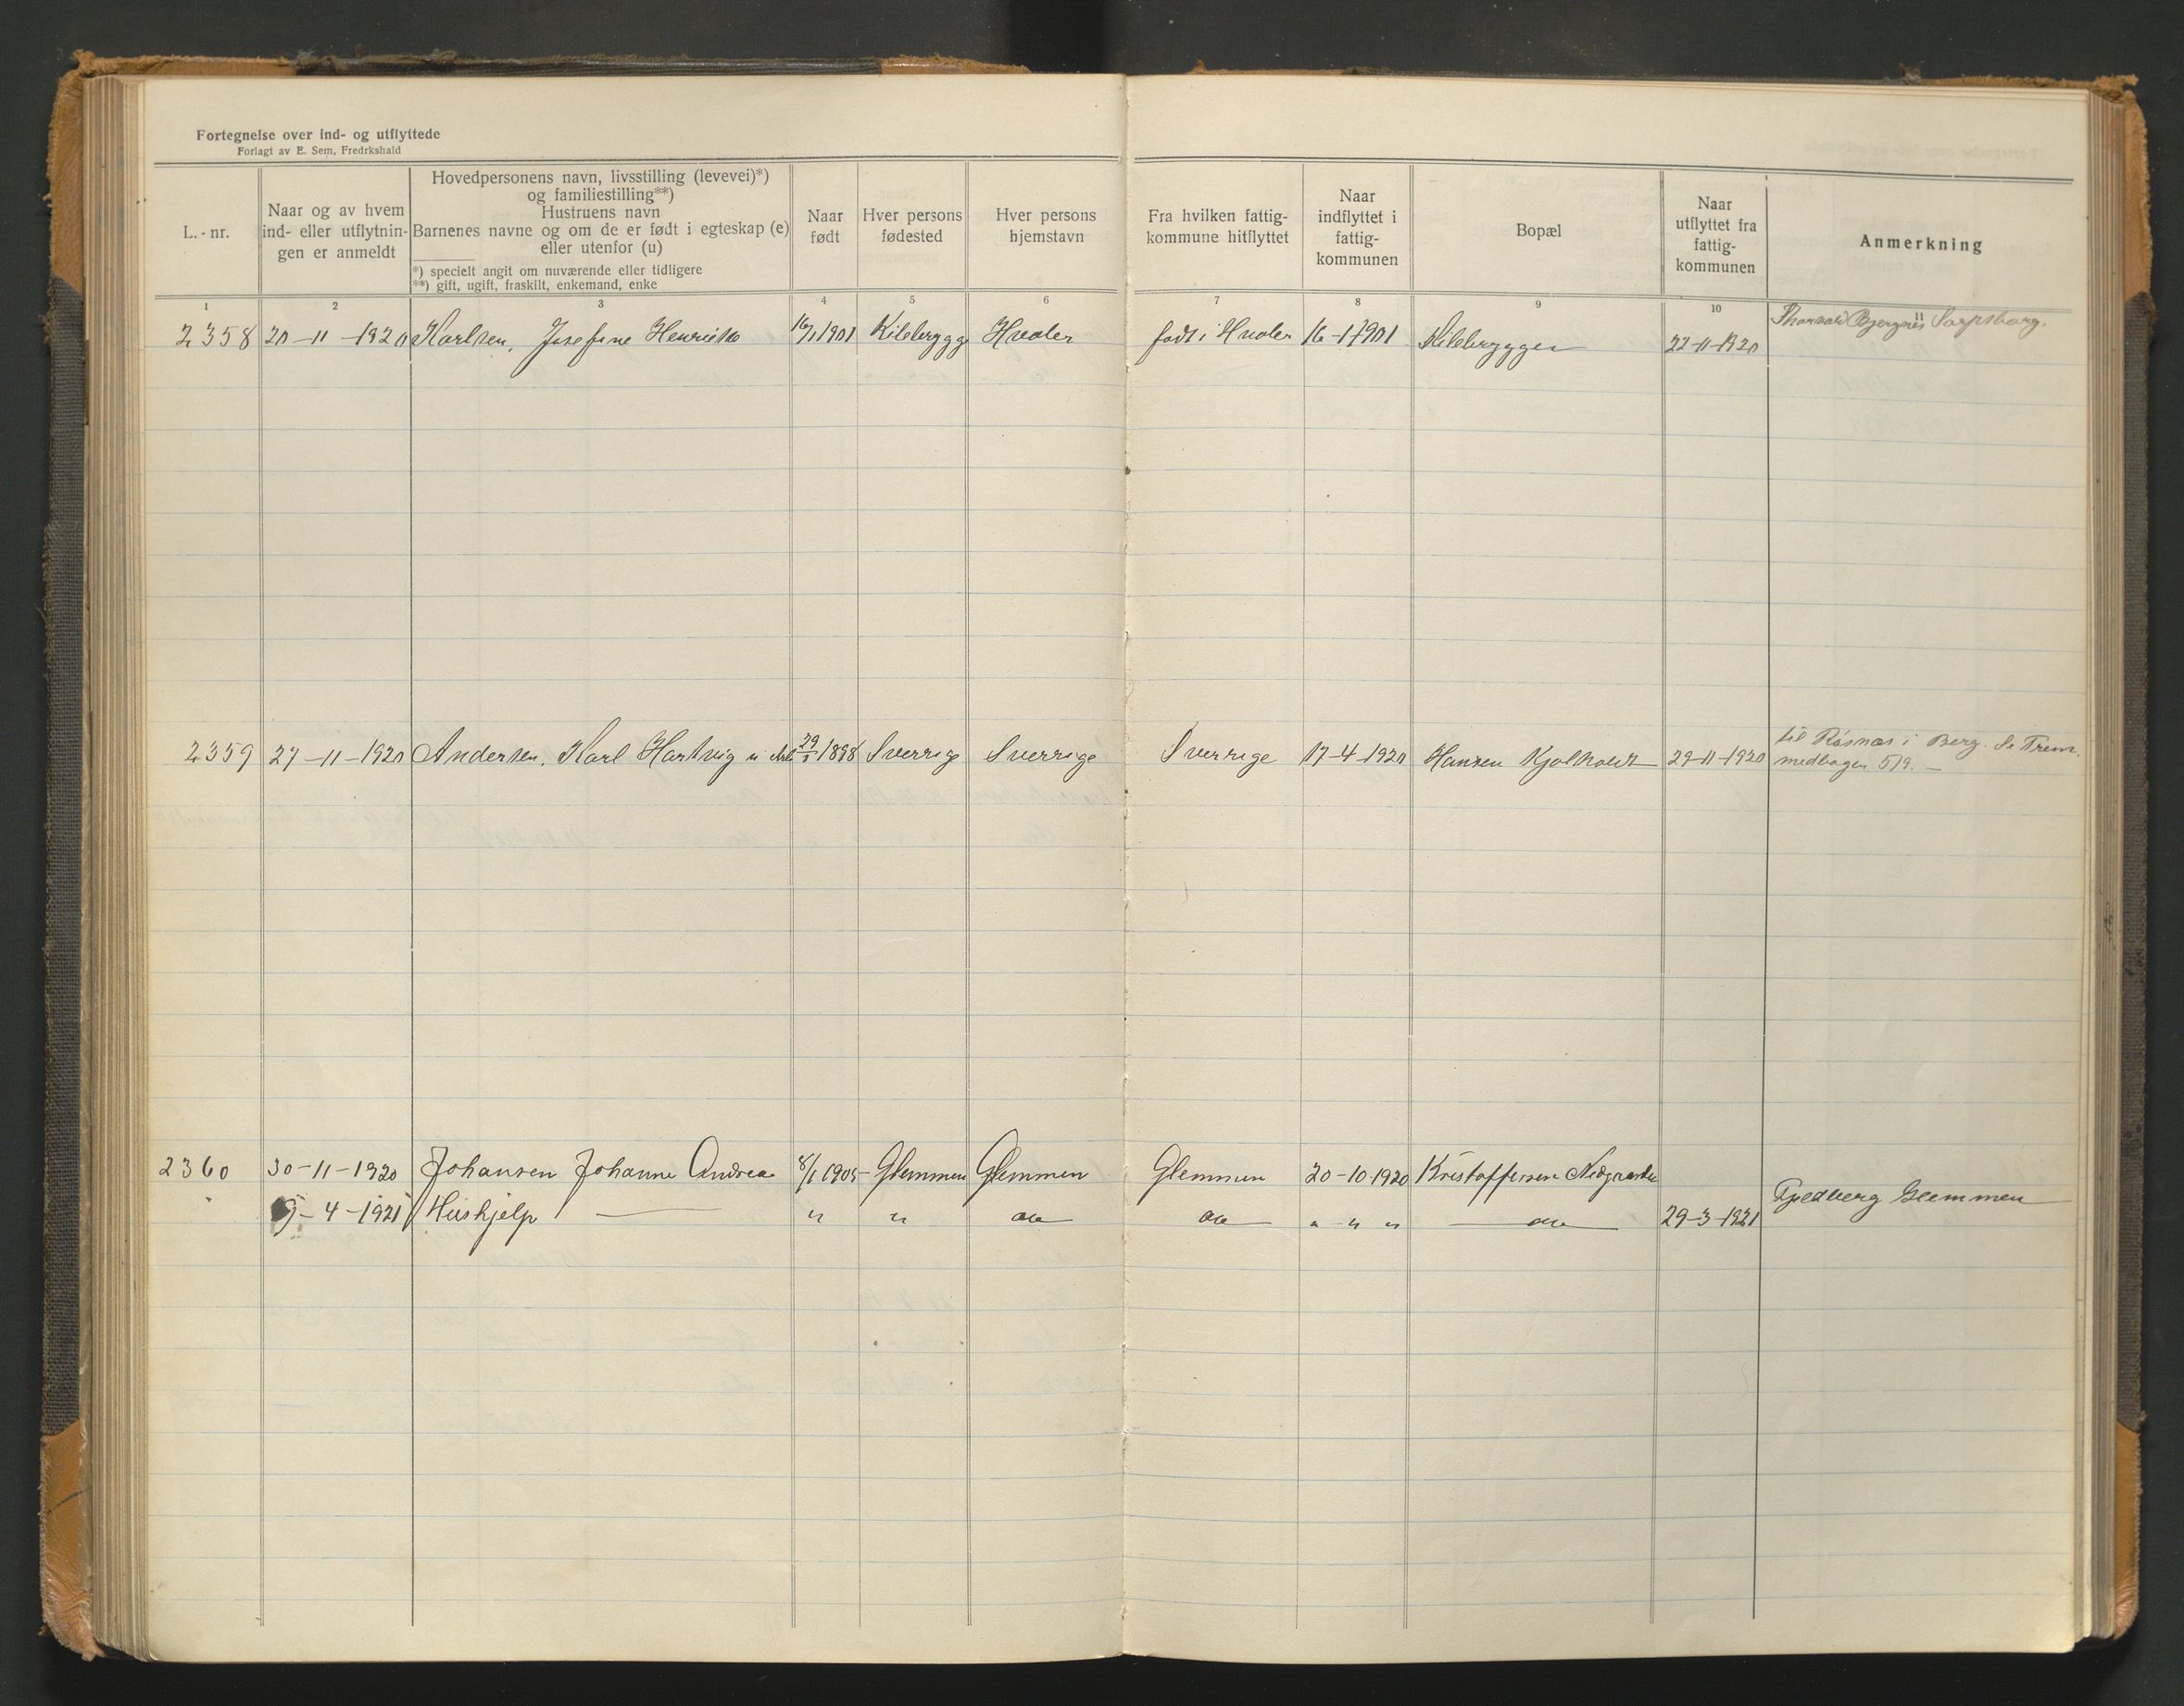 Fortegnelse over ind- og utflyttede
Forlagt av E. Sem, Fredrkshald
L.-nr.
Naar og av hvem
ind- eller utflytnin-
gen er anmeldt
Hovedpersonens navn, livsstilling (levevei)*)
og familiestilling**)
Hustruens navn
Barnenes navne og om de er født i egteskap (e)
eller utenfor (u)
*) specielt angit om nuværende eller tidligere
**) gift, ugift, fraskilt, enkemand, enke
Naar
født
Hver persons
fødested
Hver persons
hjemstavn
Fra hvilken fattig-
kommune hitflyttet
Naar
indflyttet i
fattig-
kommunen
Bopæl
Naar
utflyttet fra
fattig-
kommunen
Anmerkning
1 2 3 4 5 6 7 8 9 10 11
2358 20-11-1920 Karlsen, Josefine Henriette 16/1 1901 Kilebrygge Hvaler født i Hvaler 16-1-1901 Kilebryggen 22-11-1920 Sarpsborg.
2359 27-11-1920 Andersen, Karl Hartvig 29/5 1898 Sverrige Sverrige Sverrige 17-4-1920 Hansen Kjølholt 29-11-1920 til Røsnæs i Berg. Se Frem
medbogen 519.
2360 30-11-1920 Johansen Johanne Andrea 8/1 1905 Glemmen Glemmen Glemmen 20-10-1920 Kristoffersen Nedgaarden
5-4-1921 Hushjelp — " " do do " " " do 29-3-1921 Glemmen